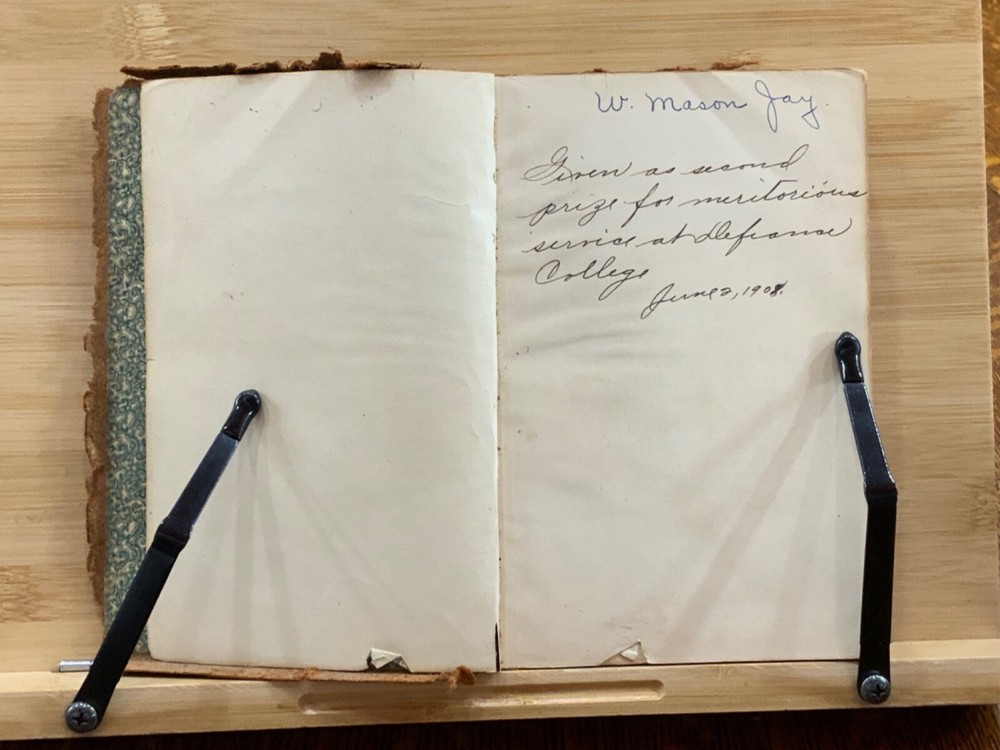 W. Mason Jay.
Given as second
prize for meritorious
service at Defiance
College
June 2, 1908.